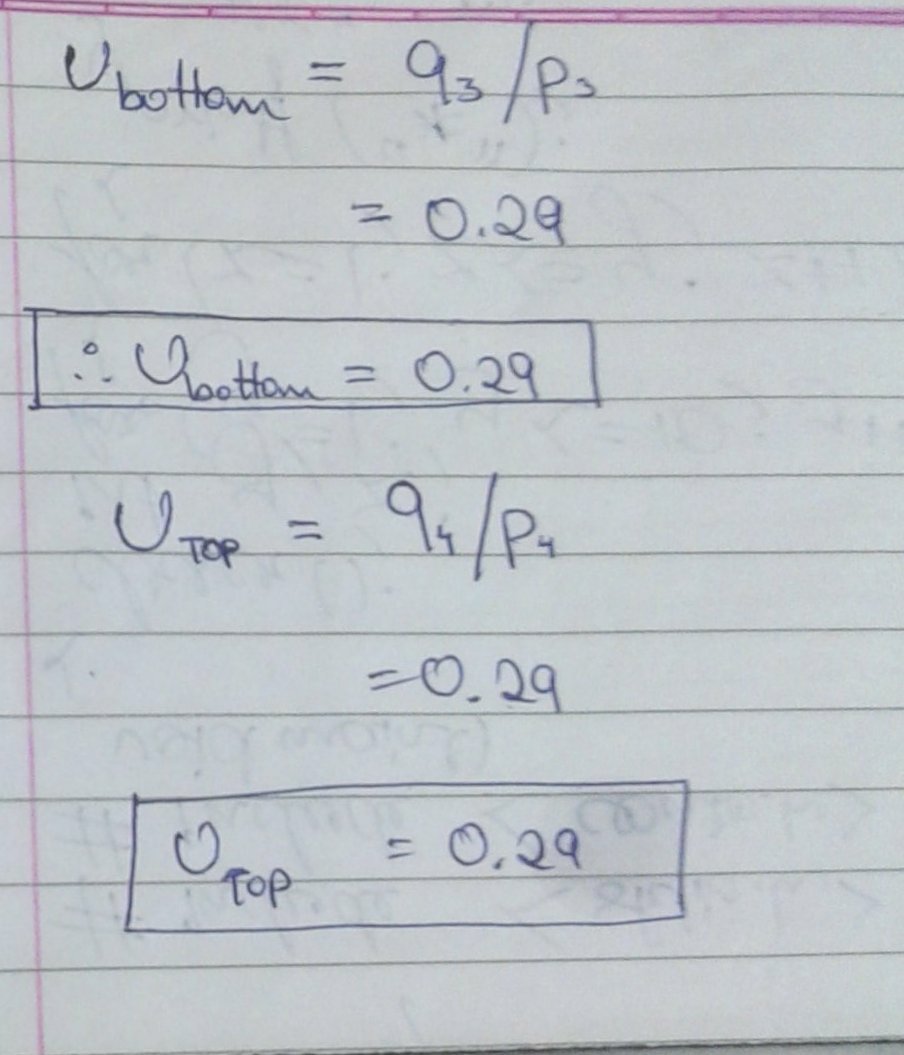 U bottom = q3/p3
= 0.29
∴ U bottom = 0.29
U TOP = q4/p4
= 0.29
U TOP = 0.29